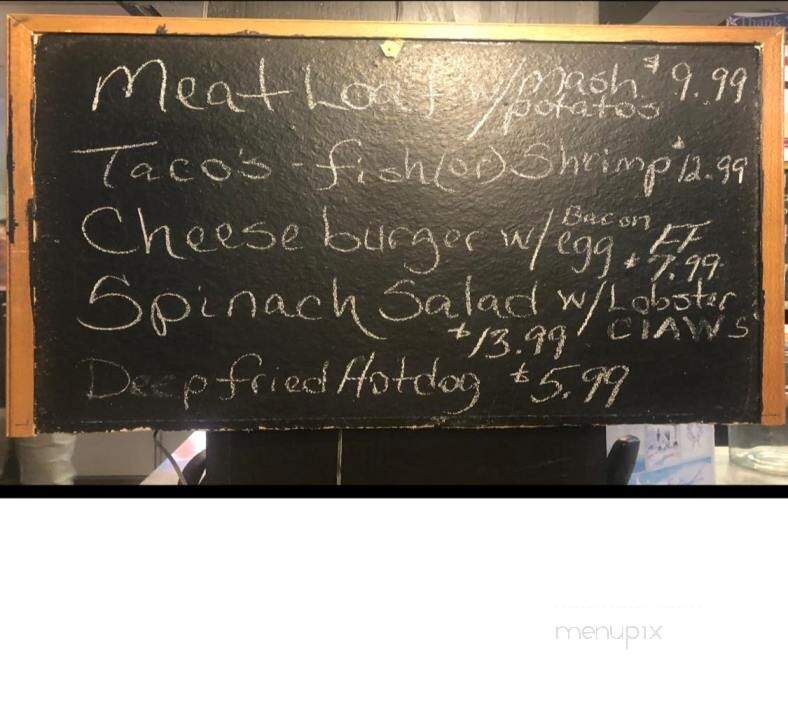 Meat Loaf w/mash potatos $9.99
Taco's - fish(or)Shrimp $12.99
Cheese burger w/ Bacon egg FF $7.99
Spinach Salad w/Lobster
$13.99 ClAWS
Deep fried Hotdog $5.99
Thank
menupix